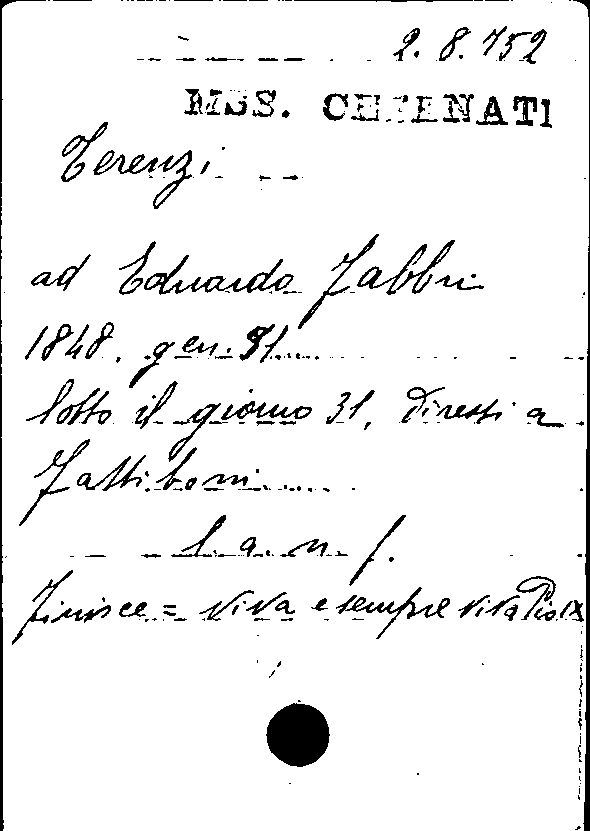 2. 8. 752
MSS. CESENATI
Terenzi
ad Eduardo Fabbri
1848. gen. 31
sotto il giorno 31, diretti a
Fattiboni
l. a. n. f.
Finisce = viva e sempre viva Pio IX